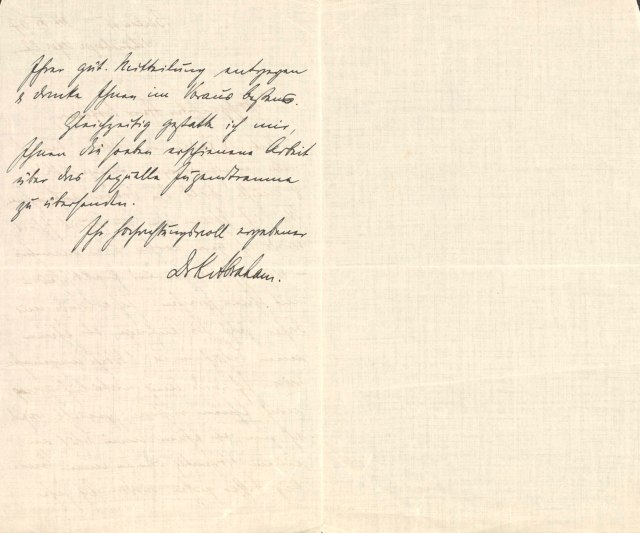 Ihrer güt. Mitteilung entgegen
& danke Ihnen im Voraus bestens.
Gleichzeitig gestatte ich mir,
Ihnen die soeben erschienene Arbeit
über das sexuelle Jugendtrauma
zu übersenden.
Ihr hochachtungsvoll ergebener
Dr K. Abraham.